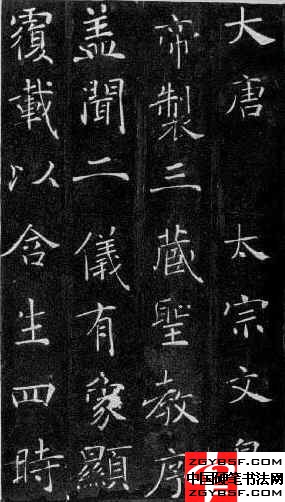 大唐太宗文皇
帝製三藏聖教序
盖聞二儀有象顯
覆載以含生四時
ZGYBSF.COM
中国硬笔书法网
ZGYBSF.COM